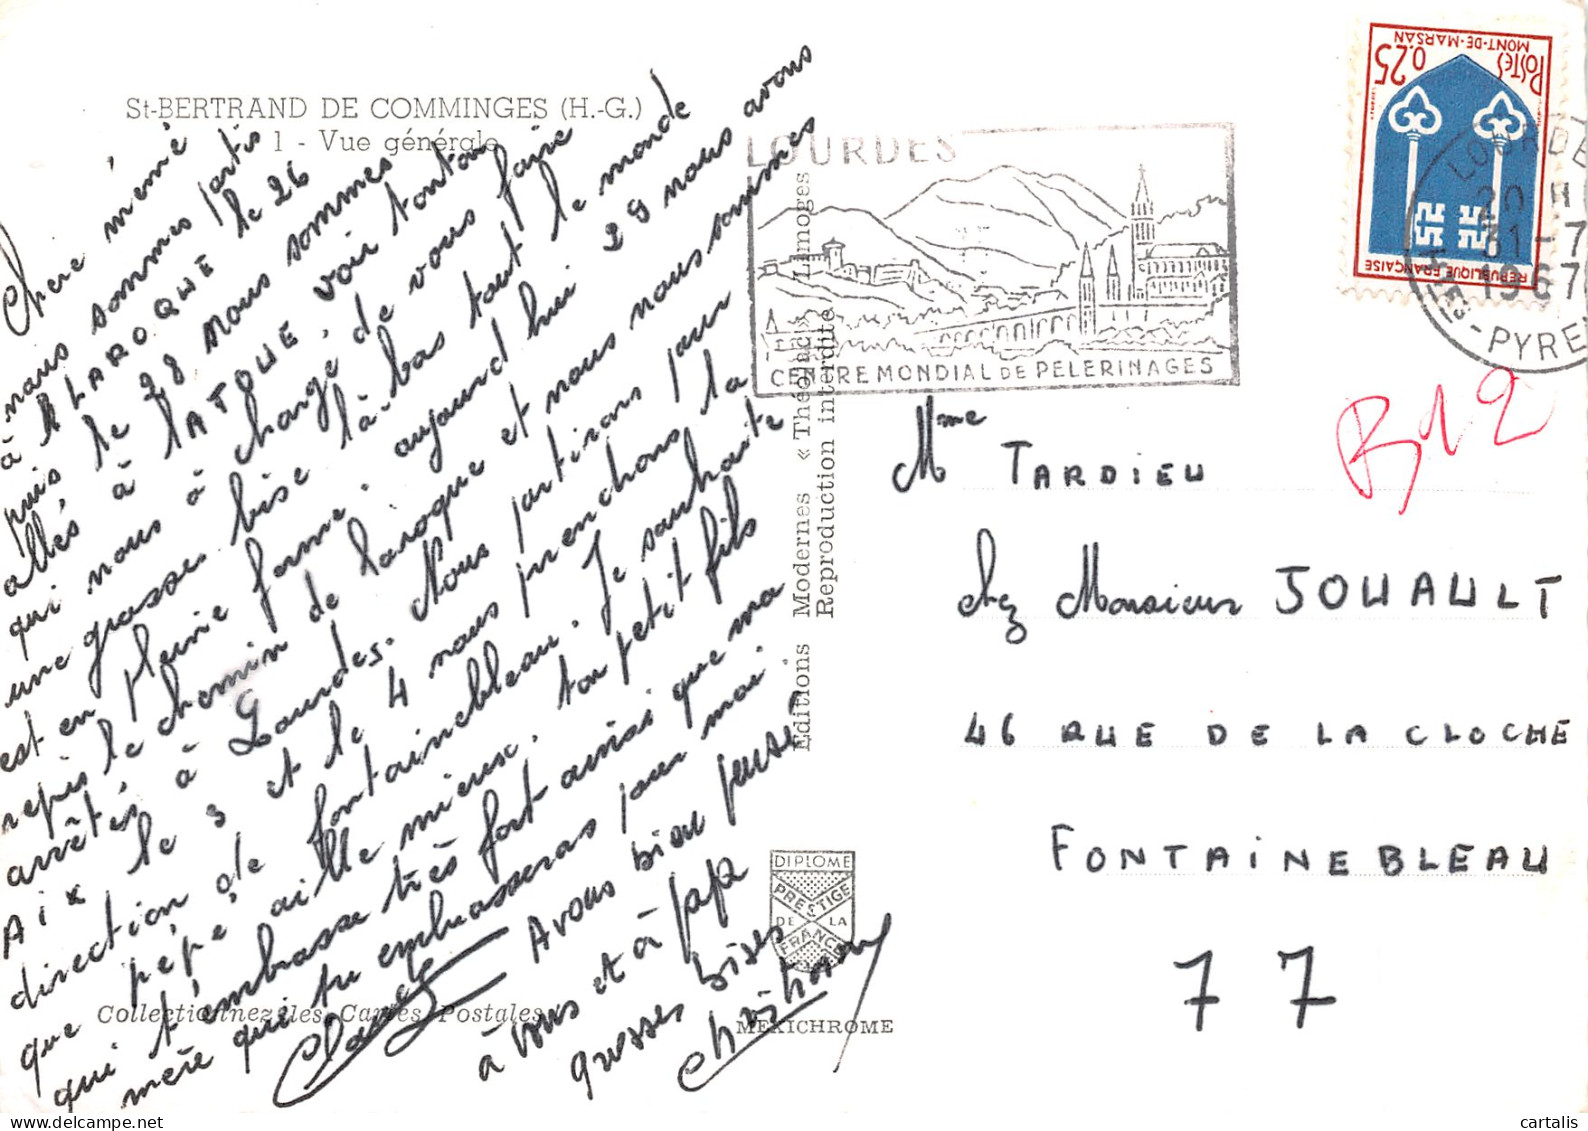 St-BERTRAND DE COMMINGES (H.-G.)
1 - Vue générale
Chère mémé
nous sommes partis
à LAROQUE le 26
puis le 28 nous sommes
allés à LATOUE, voir tonton
qui nous à chargé de vous faire
une grosse bise là-bas tout le monde
est en pleine forme. aujourd hui 29 nous avons
repis le chemin de laroque et nous nous sommes
arrêtés à Lourdes. Nous partirons pour
Aix le 3 et le 4 nous prenchons la
direction de fontainebleau. Je souhaite
que pépé aille mieux. ton petit fils
qui t'embrasse très fort ainsi que ma
mère qui tu embrasseras pour moi.
Claude
Avons bien pensé
à vous et à papé
grosses bises
Christiane
Collection inez les Cartes Postales
Editions Modernes « Théojac » Limoges
Reproduction interdite
DIPLOME
PRESTIGE
DE LA
FRANCE
MEXICHROME
LOURDES
CENTRE MONDIAL DE PELERINAGES
POSTES 0,25
MONT-DE-MARSAN
REPUBLIQUE FRANÇAISE
LOURDES
20 H
31-7
1967
HTES-PYRE
B12
Mme TARDIEU
chez Monsieur JOUAULT
46 RUE DE LA CLOCHE
FONTAINEBLEAU
77
cartalis